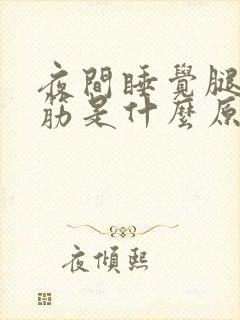 夜間睡覺腿
筋是什麼原
夜傾熙